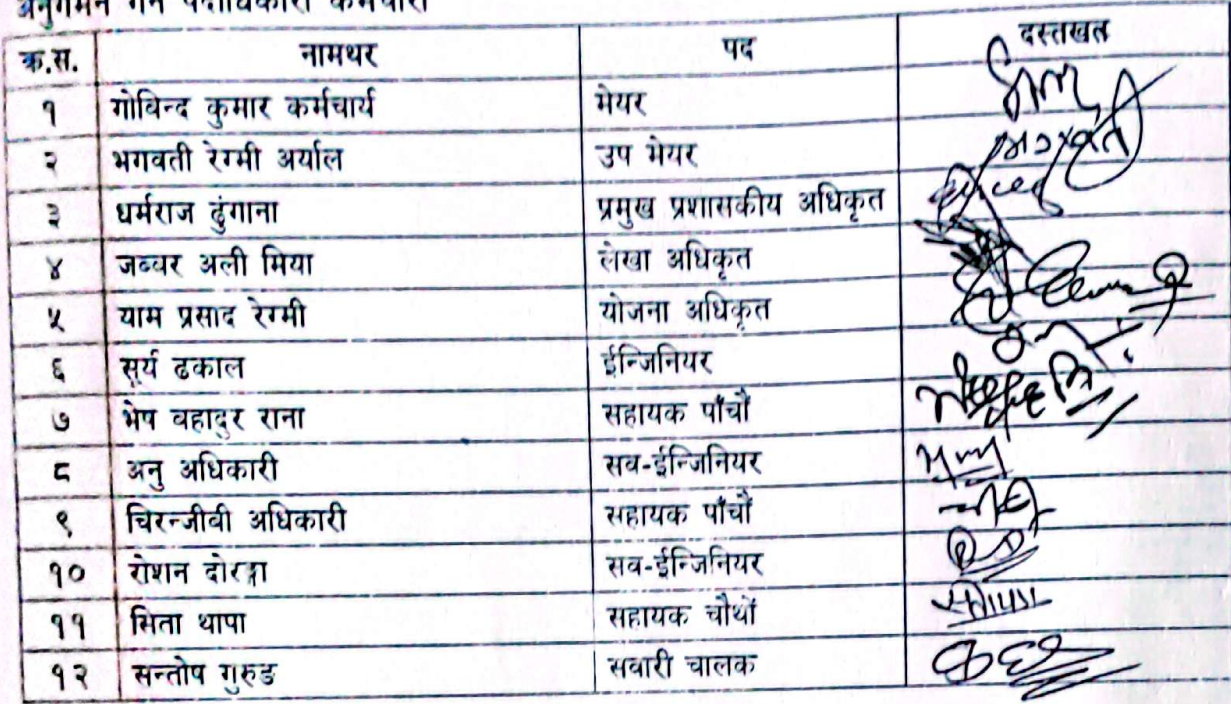 अनुगमन गर्ने पदाधिकारी कर्मचारी
क.स. नामथर पद दस्तखत
१ गोविन्द कुमार कर्मचार्य मेयर
२ भगवती रेग्मी अर्याल उप मेयर
३ धर्मराज ढुंगाना प्रमुख प्रशासकीय अधिकृत
४ जव्वर अली मिया लेखा अधिकृत
५ याम प्रसाद रेग्मी योजना अधिकृत
६ सूर्य ढकाल ईन्जिनियर
७ भेष वहादुर राना सहायक पाँचौं
८ अनु अधिकारी सव-ईन्जिनियर
९ चिरन्जीवी अधिकारी सहायक पाँचौं
१० रोशन दोरङ्गा सव-ईन्जिनियर
११ सिता थापा सहायक चौथों
१२ सन्तोष गुरुङ सवारी चालक